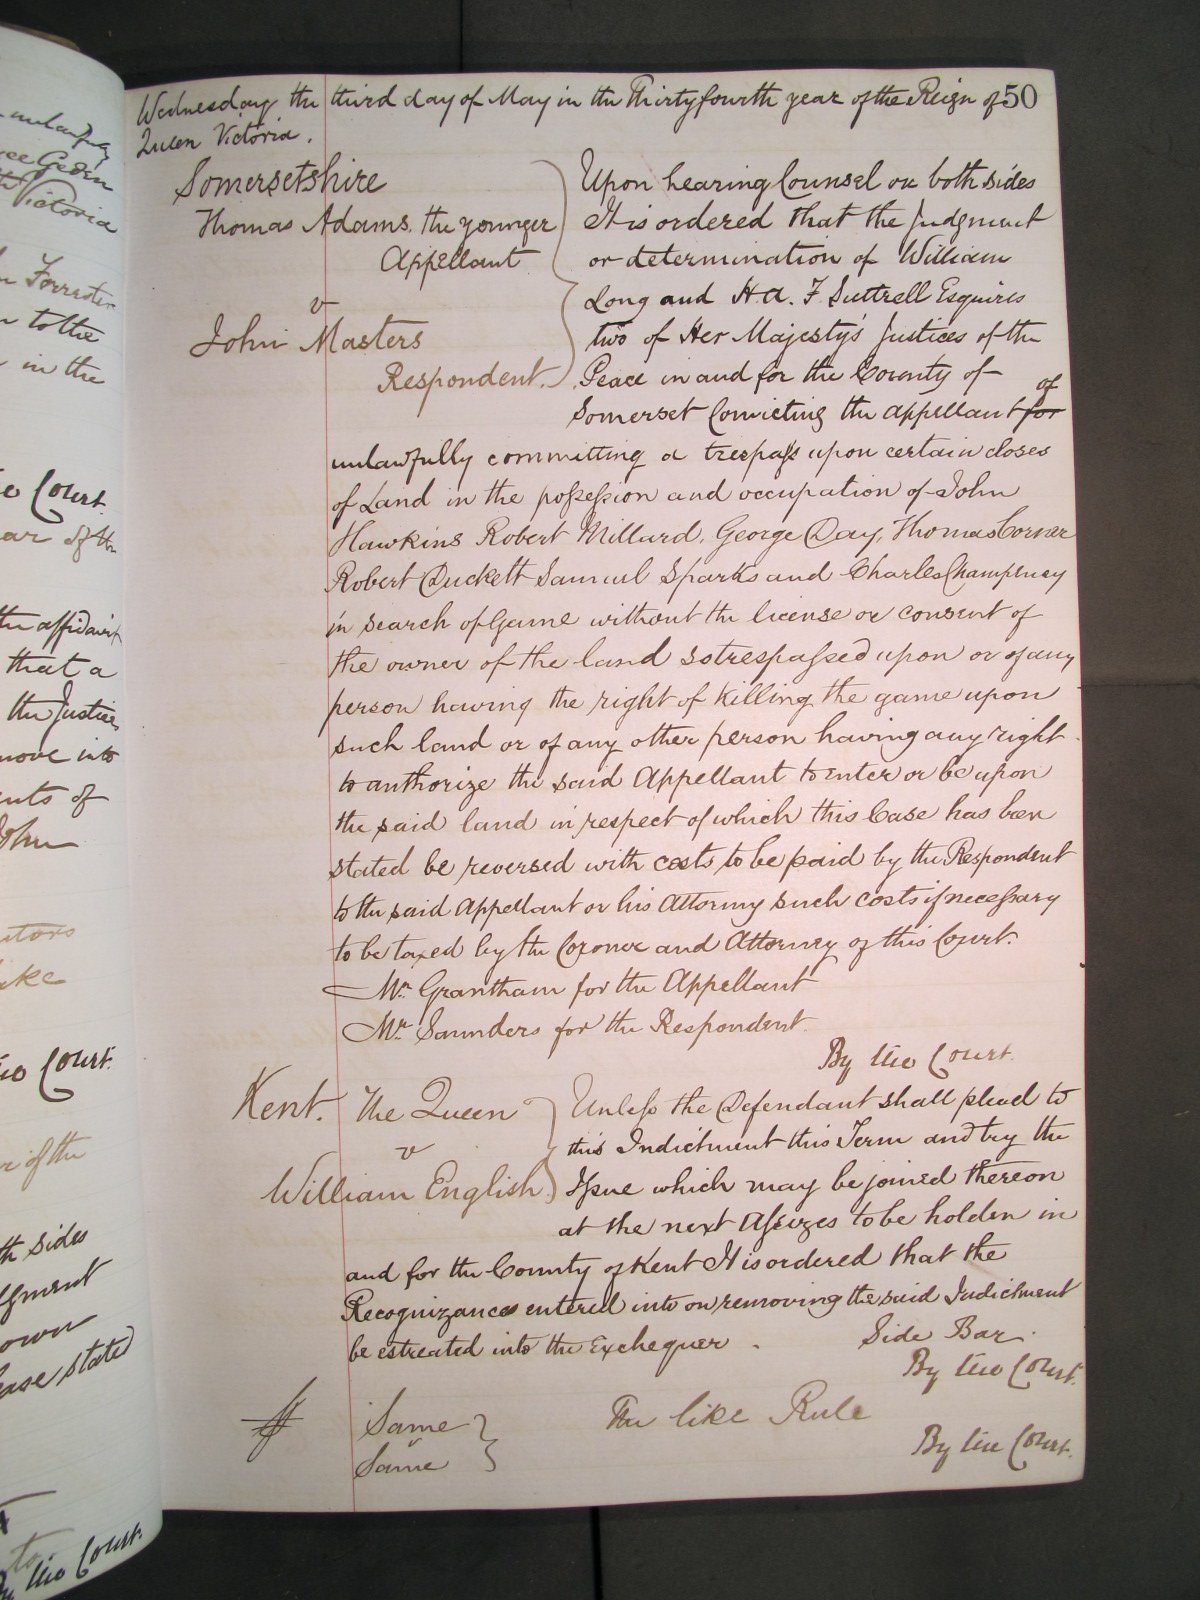 Wednesday the third day of May in the Thirty fourth year of the Reign of 50
Queen Victoria.
Somersetshire
Thomas Adams the younger
Appellant
v
John Masters
Respondent.
Upon hearing Counsel on both sides
It is ordered that the Judgment
or determination of William
Long and H. A. F. Luttrell Esquires
two of Her Majesty's Justices of the
Peace in and for the County of
Somerset Convicting the appellant for of
unlawfully committing a trespass upon certain closes
of Land in the possession and occupation of John
Hawkins Robert Millard, George Day, Thomas Corner
Robert Duckett Samuel Sparks and Charles Champeney
in search of Game without the license or consent of
the owner of the land so trespassed upon or of any
person having the right of killing the game upon
such land or of any other person having any right
to authorize the said Appellant to enter or be upon
the said land in respect of which this Case has been
stated be reversed with costs to be paid by the Respondent
to the said Appellant or his Attorney such costs if necessary
to be taxed by the Coroner and Attorney of this Court.
Mr. Grantham for the Appellant
Mr. Saunders for the Respondent
By the Court.
Kent. The Queen
v
William English
Unless the Defendant shall plead to
this Indictment this Term and try the
Issue which may be joined thereon
at the next Assizes to be holden in
and for the County of Kent It is ordered that the
Recognizances entered into on removing the said Indictment
be estreated into the Exchequer.
Side Bar.
By the Court.
Same
v
Same
The like Rule
By the Court.
unlawfully
Geden
Victoria
Forrester
to the
in the
Court.
of the
the affidavit
that a
the Justices
move into
of
John
By the Court.
of the
sides
case stated
to
By the Court.